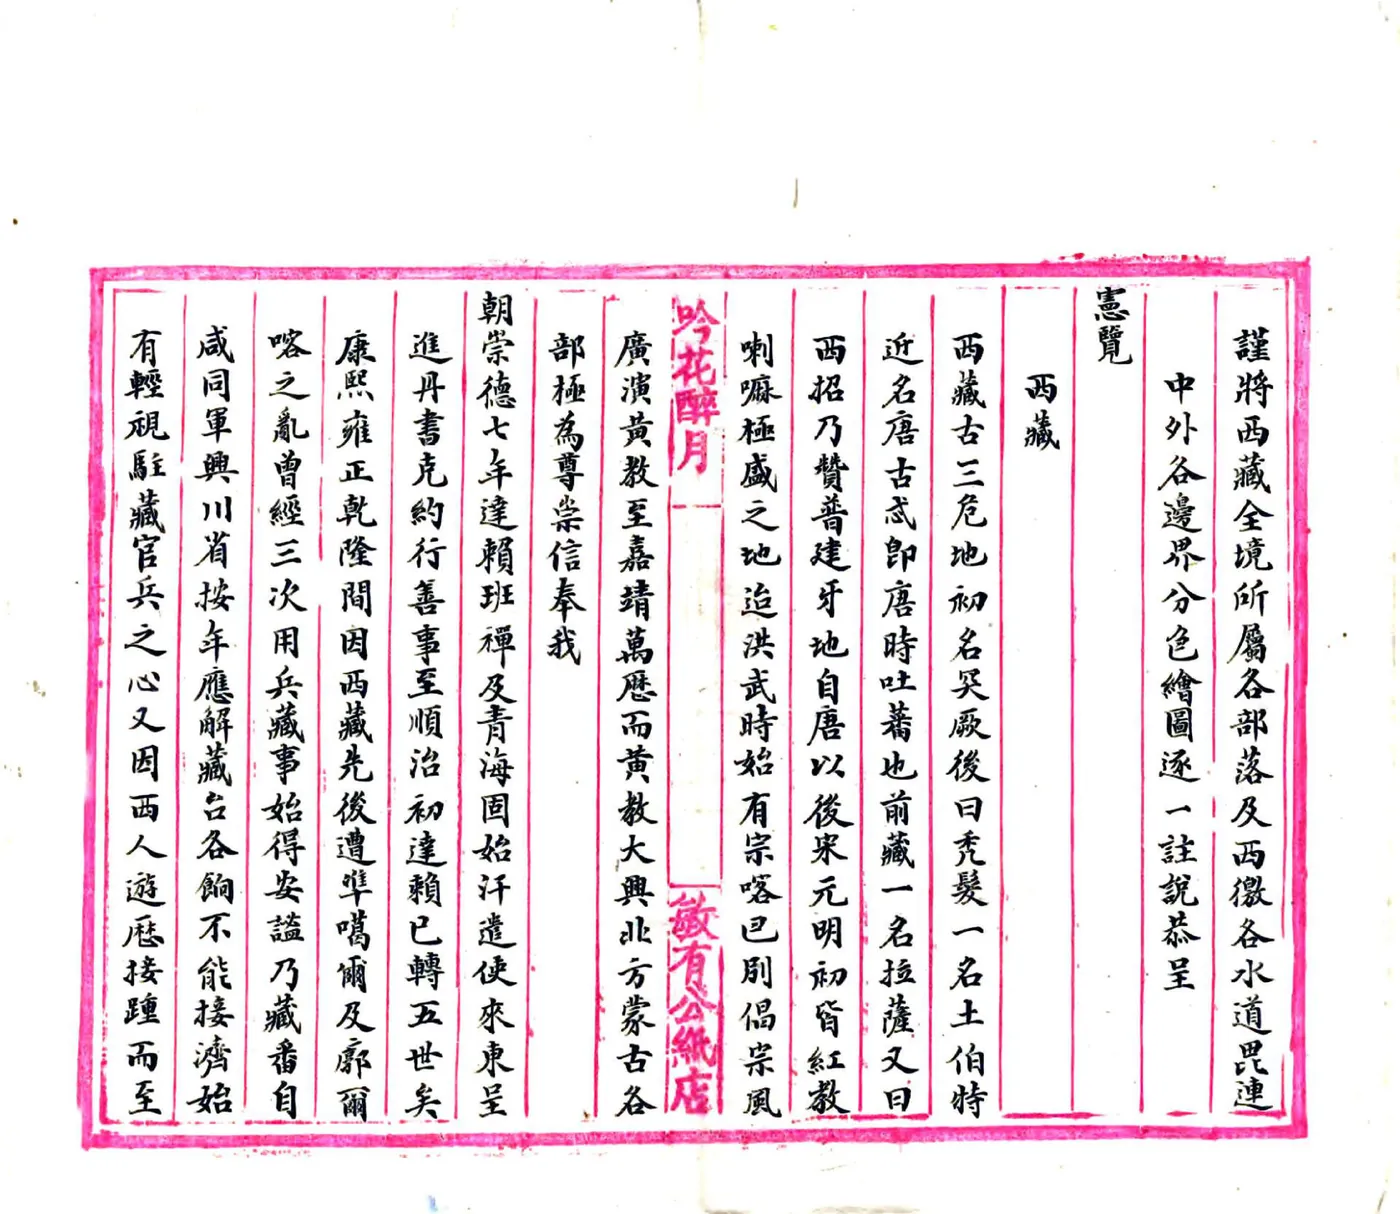 謹將西藏全境所屬各部落及西徼各水道毘連
中外各邊界分色繪圖逐一註說恭呈
憲覽
西藏
西藏古三危地初名突厥後曰禿髮一名土伯特
近名唐古忒即唐時吐蕃也前藏一名拉薩又曰
西招乃贊普建牙地自唐以後宋元明初皆紅教
喇嘛極盛之地迨洪武時始有宗喀巴別倡宗風
吟花醉月
敏有公紙店
廣演黃教至嘉靖萬歷而黃教大興北方蒙古各
部極為尊崇信奉我
朝崇德七年達賴班禪及青海固始汗遣使來東呈
進丹書克約行善事至順治初達賴已轉五世矣
康熙雍正乾隆間因西藏先後遭準噶爾及廓爾
喀之亂曾經三次用兵藏事始得安謐乃藏番自
咸同軍興川省按年應解藏台各餉不能接濟始
有輕視駐藏官兵之心又因西人遊歷接踵而至